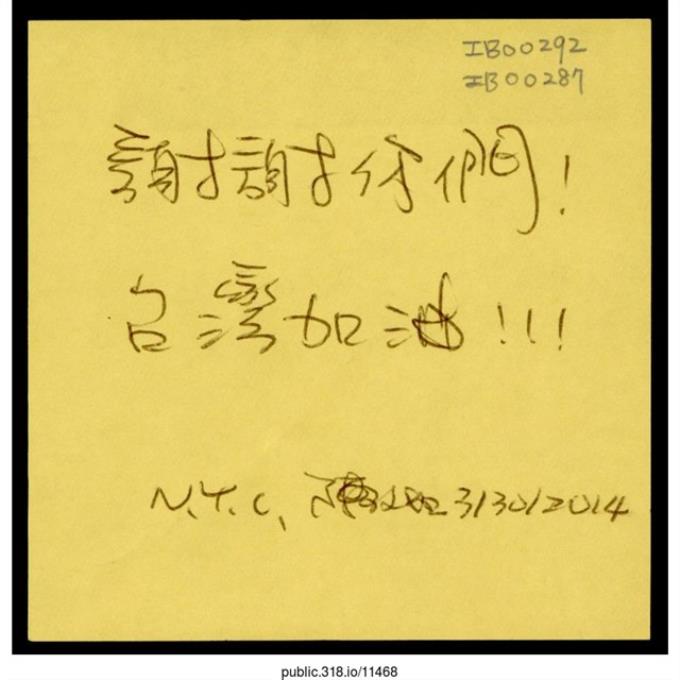 IB00292
IB00287
謝謝你們!
台灣加油!!!
N.Y.C. 陳 3/30/2014
public.318.io/11468